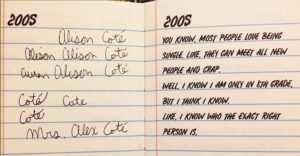 2005
Alison Coté
Alison Alison Coté
Alison Coté
Coté Cote
Coté
Mrs. Alex Coté
2005
YOU KNOW, MOST PEOPLE LOVE BEING
SINGLE. LIKE, THEY CAN MEET ALL NEW
PEOPLE AND CRAP.
WELL, I KNOW I AM ONLY IN 8TH GRADE,
BUT I THINK I KNOW.
LIKE, I KNOW WHO THE EXACT RIGHT
PERSON IS.